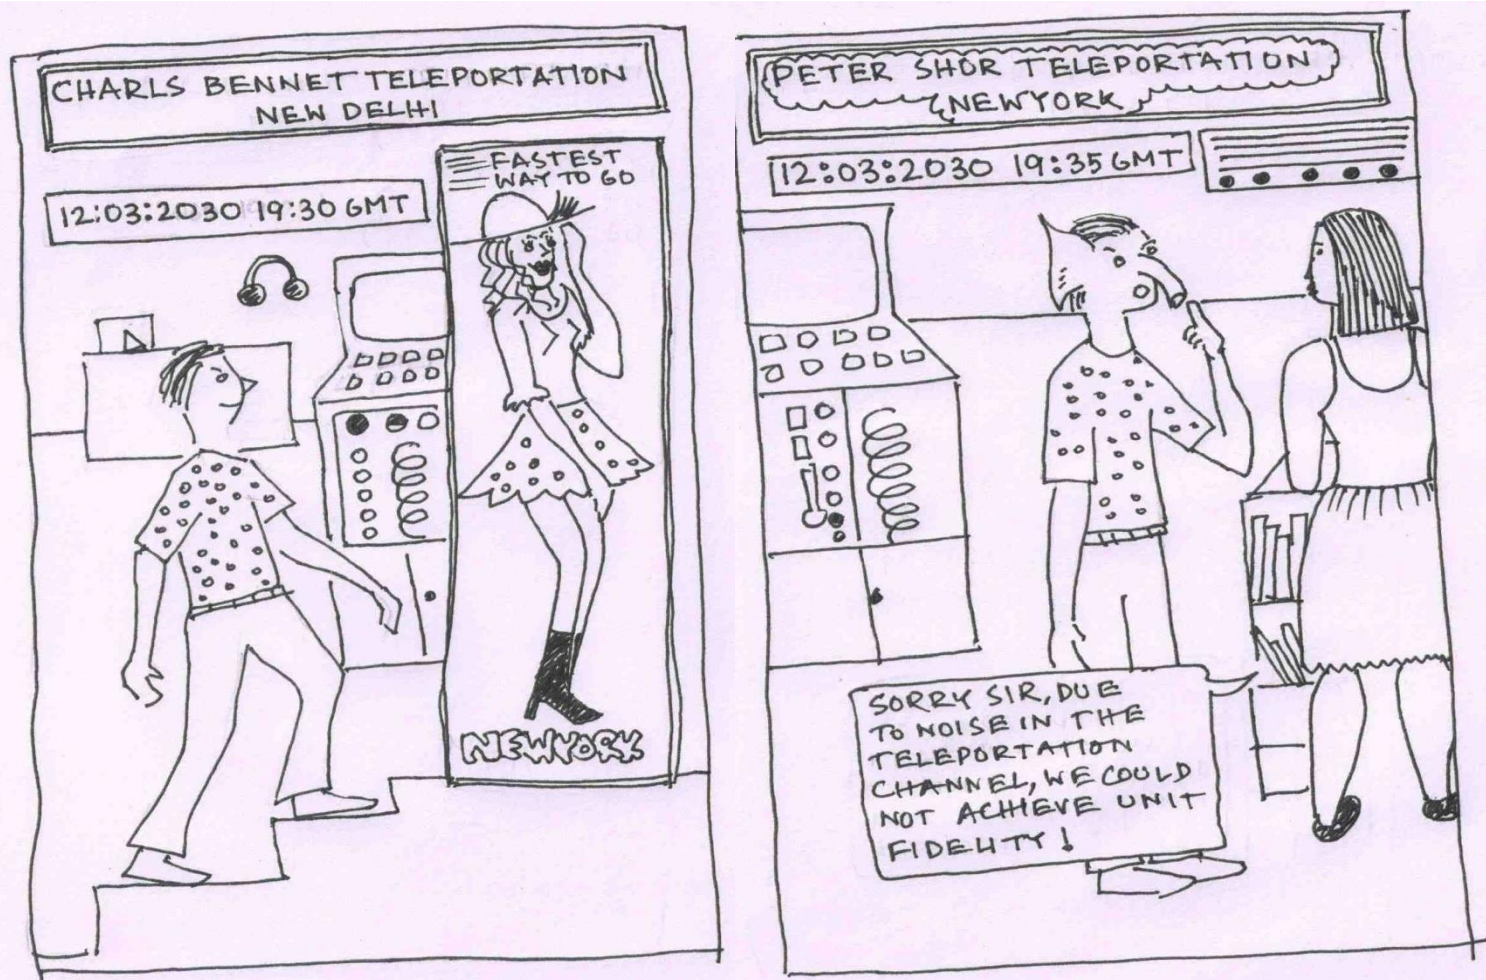 CHARLS BENNET TELEPORTATION
NEW DELHI
FASTEST
WAY TO GO
12:03:2030 19:30 GMT
NEWYORK
PETER SHOR TELEPORTATION
NEWYORK
12:03:2030 19:35 GMT
SORRY SIR, DUE
TO NOISE IN THE
TELEPORTATION
CHANNEL, WE COULD
NOT ACHIEVE UNIT
FIDELITY!